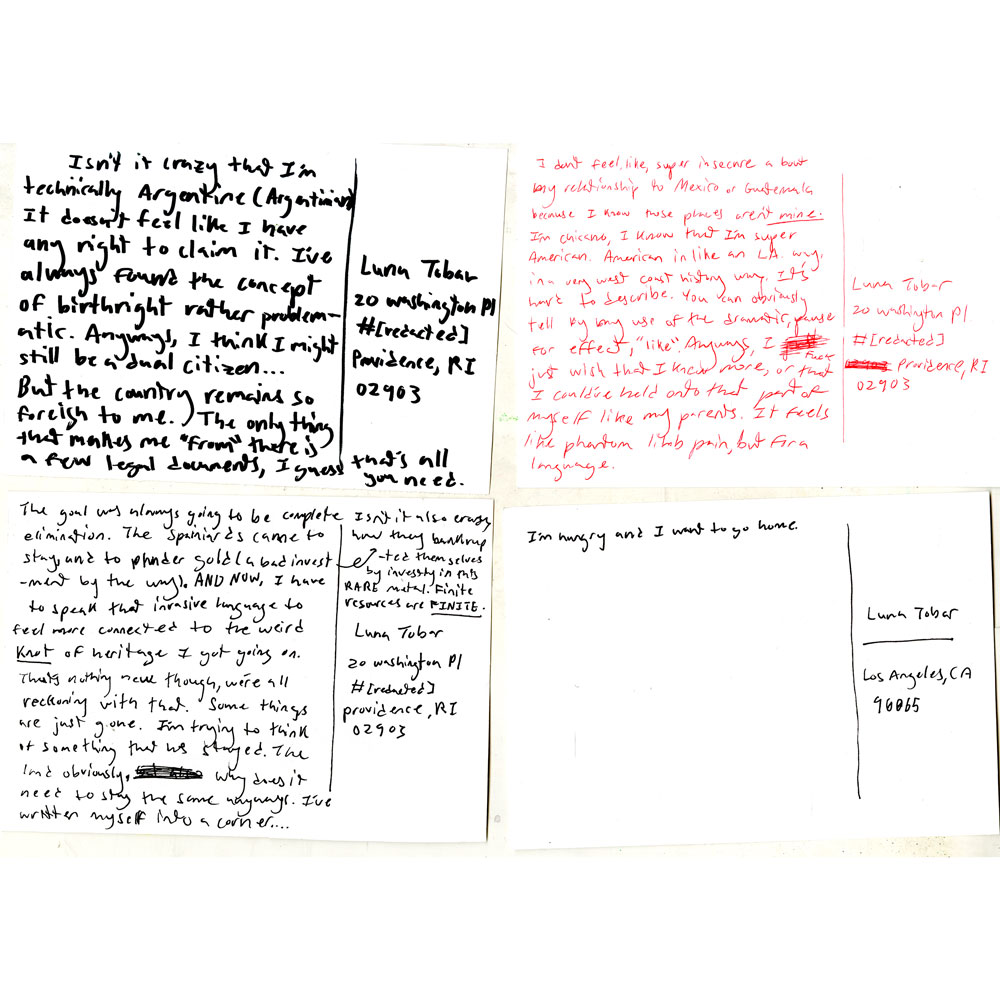 Isn't it crazy that I'm
technically Argentine (Argentinian)
It doesn't feel like I have
any right to claim it. I've
always found the concept
of birthright rather problem-
atic. Anyways, I think I might
still be a dual citizen...
But the country remains so
foreign to me. The only thing
that makes me "from" there is
a few legal documents, I guess that's all
you need.
Luna Tobar
20 washington Pl
#[redacted]
Providence, RI
02903
I don't feel, like, super insecure about
my relationship to Mexico or Guatemala
because I know those places aren't mine.
I'm chicano, I know that I'm super
American. American in like an L.A. way,
in a very west coast history way. It's
hard to describe. You can obviously
tell by my use of the dramatic, pause
for effect, "like". Anyways, I
fuck
just wish that I knew more, or that
I could've held onto that part of
myself like my parents. It feels
like phantom limb pain, but for a
language.
Luna Tobar
20 washington Pl
#[redacted]
providence, RI
02903
The goal was always going to be complete
elimination. The Spaniards came to
stay, and to plunder gold (a bad invest
-ment by the way). AND NOW, I have
to speak that invasive language to
feel more connected to the weird
Knot of heritage I got going on.
That's nothing new though, we're all
reckoning with that. Some things
are just gone. I'm trying to think
of something that has stayed. The
land obviously, why does it
need to stay the same anyways. I've
written myself into a corner....
Isn't it also crazy
how they bankrup
-ted themselves
by investing in this
RARE metal. Finite
resources are FINITE.
Luna Tobar
20 washington Pl
#[redacted]
providence, RI
02903
I'm hungry and I want to go home.
Luna Tobar
Los Angeles, CA
90065